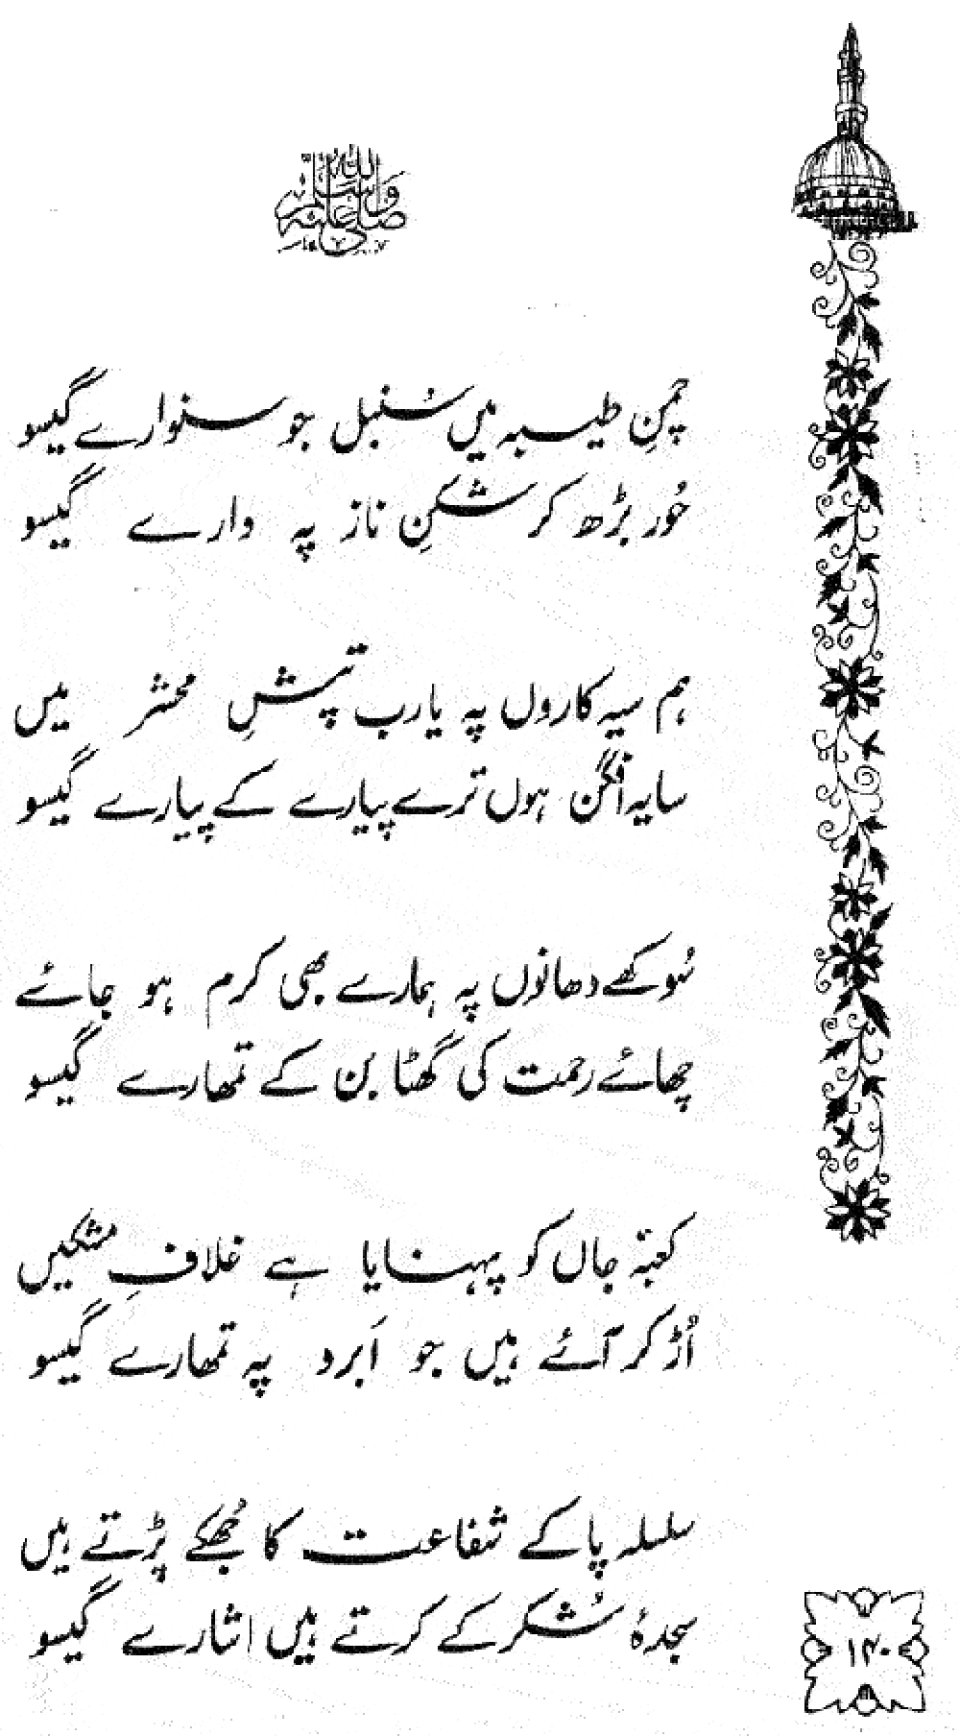 صلی اللہ علیہ وسلم
چمنِ طیبہ میں سُنبل جو سنوارے گیسو
حُور بڑھ کر شکنِ ناز پہ وارے گیسو
ہم سیہ کاروں پہ یارب تپشِ محشر میں
سایہ افگن ہوں ترے پیارے کے پیارے گیسو
سُوکھے دھانوں پہ ہمارے بھی کرم ہو جائے
چھائے رحمت کی گھٹا بن کے تمھارے گیسو
کعبۂ جاں کو پہنایا ہے غلافِ مشکیں
اُڑ کر آئے ہیں جو اَبرد پہ تمھارے گیسو
سلسلہ پا کے شفاعت کا جُھکے پڑتے ہیں
سجدۂ شُکر کے کرتے ہیں اشارے گیسو
۱۴۰